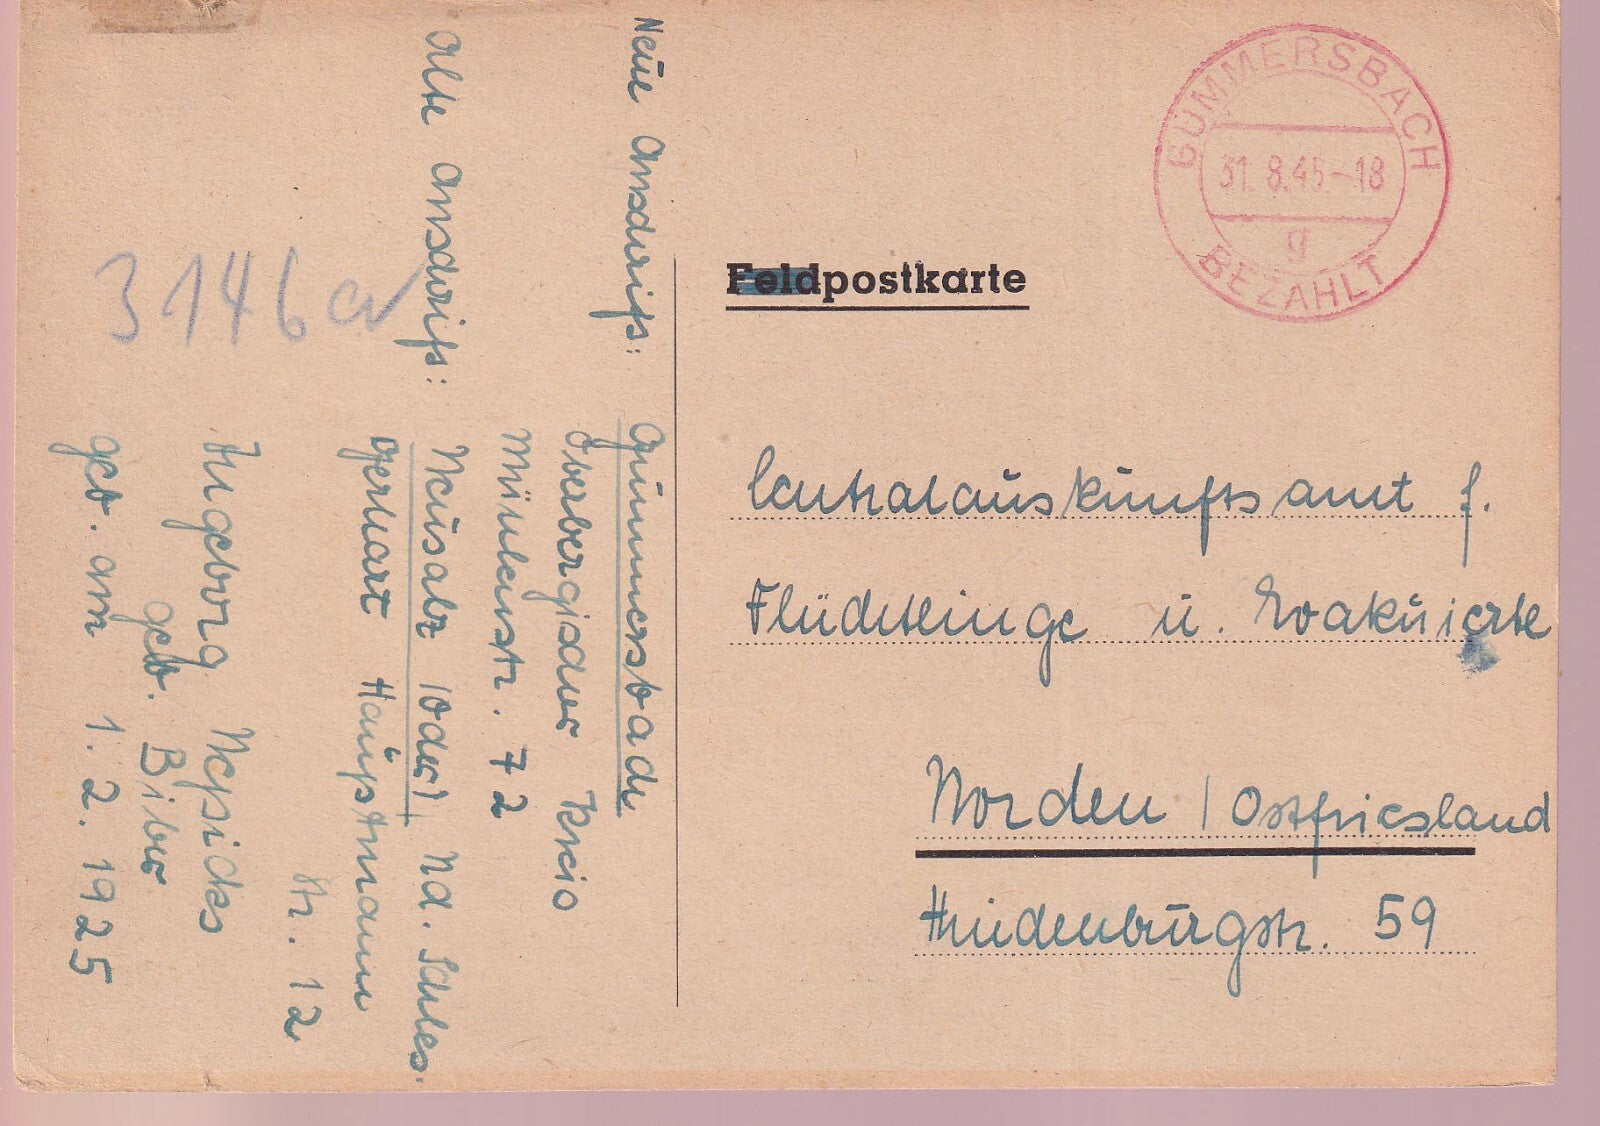 GUMMERSBACH
31.8.45.-18
g
BEZAHLT
Feldpostkarte
Centralauskunftsamt f.
Flüchtlinge u. Evakuierte
Norden / Ostfriesland
Hindenburgstr. 59
Neue Anschrift: Gummersbach
Oberbergischer Kreis
Mühlenstr. 72
Alte Anschrift: Neusalz (Oder) Nd. Schles.
Gerhart Hauptmann
Str. 12
Ingeborg
geb. Biber
geb. am 1. 2. 1925
3146a